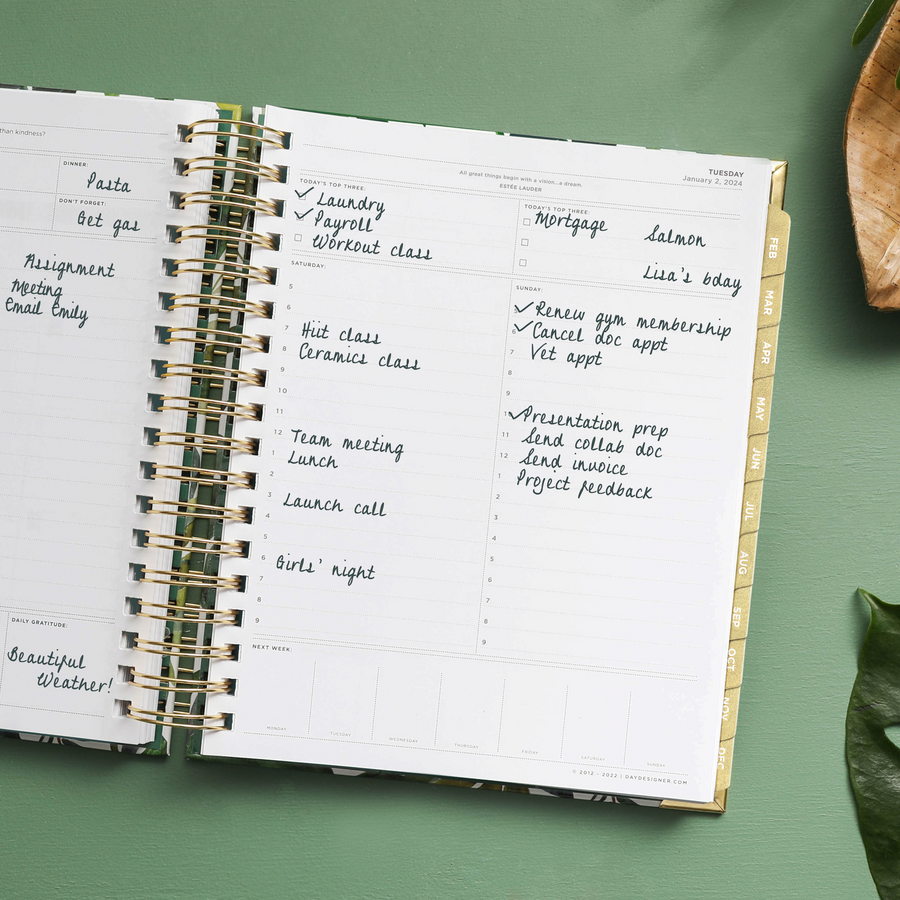 than kindness?
DINNER:
Pasta
DON'T FORGET:
Get gas
Assignment
Meeting
Email Emily
DAILY GRATITUDE:
Beautiful
Weather!
TUESDAY
January 2, 2024
All great things begin with a vision...a dream.
ESTÉE LAUDER
TODAY'S TOP THREE:
Laundry
Payroll
Workout class
SATURDAY:
5
6
7 Hiit class
8 Ceramics class
9
10
11
12 Team meeting
1 Lunch
2
3 Launch call
4
5
6 Girls' night
7
8
9
TODAY'S TOP THREE:
Mortgage Salmon
Lisa's bday
SUNDAY:
Renew gym membership
6 Cancel doc appt
7 Vet appt
8
9
Presentation prep
11 Send collab doc
12 Send invoice
1 Project feedback
2
3
4
5
6
7
8
9
NEXT WEEK:
MONDAY TUESDAY WEDNESDAY THURSDAY FRIDAY SATURDAY SUNDAY
© 2012 - 2022 | DAYDESIGNER.COM
FEB
MAR
APR
MAY
JUN
JUL
AUG
SEP
OCT
NOV
DEC